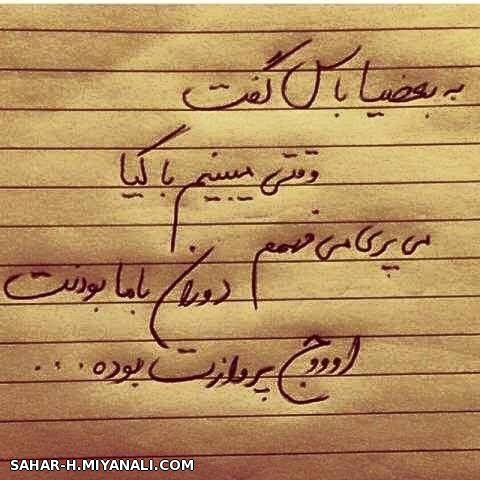 به بعضیا باس گفت
وقتی میبینیم با کیا
می پری می فهمم
دوران باما بودنت
اووووج پروازت بوده...
SAHAR-H.MIYANALI.COM